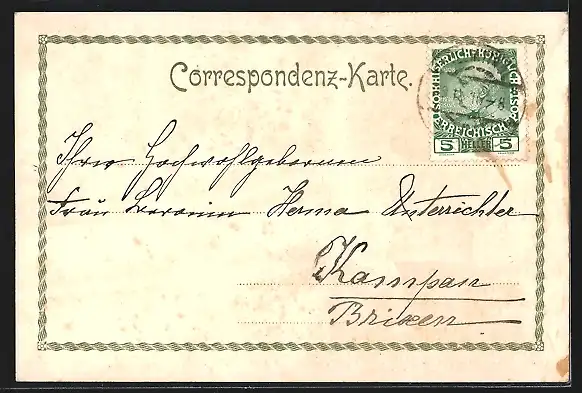 Correspondenz-Karte.
KAISERLICH KÖNIGLICHE
ÖSTERREICHISCHE POST
5 HELLER 5
Ihrer Hochwohlgeborenen
Frau Baronin Herma Unterrichter
Kampan
Brixen